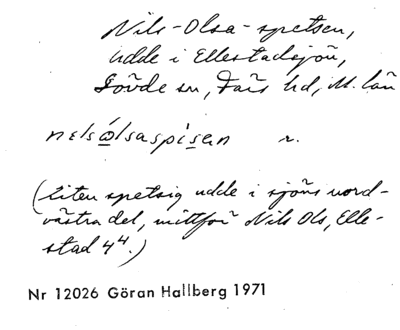 Nils-Olsa-spetsen,
udde i Ellestadsjön,
Sövde sn, Färs hd, M. län
nɛlsólsaspísen r.
(Liten spetsig udde i sjöns nord-
västra del, mittför Nils Ols, Elle-
stad 4⁴.)
Nr 12026 Göran Hallberg 1971